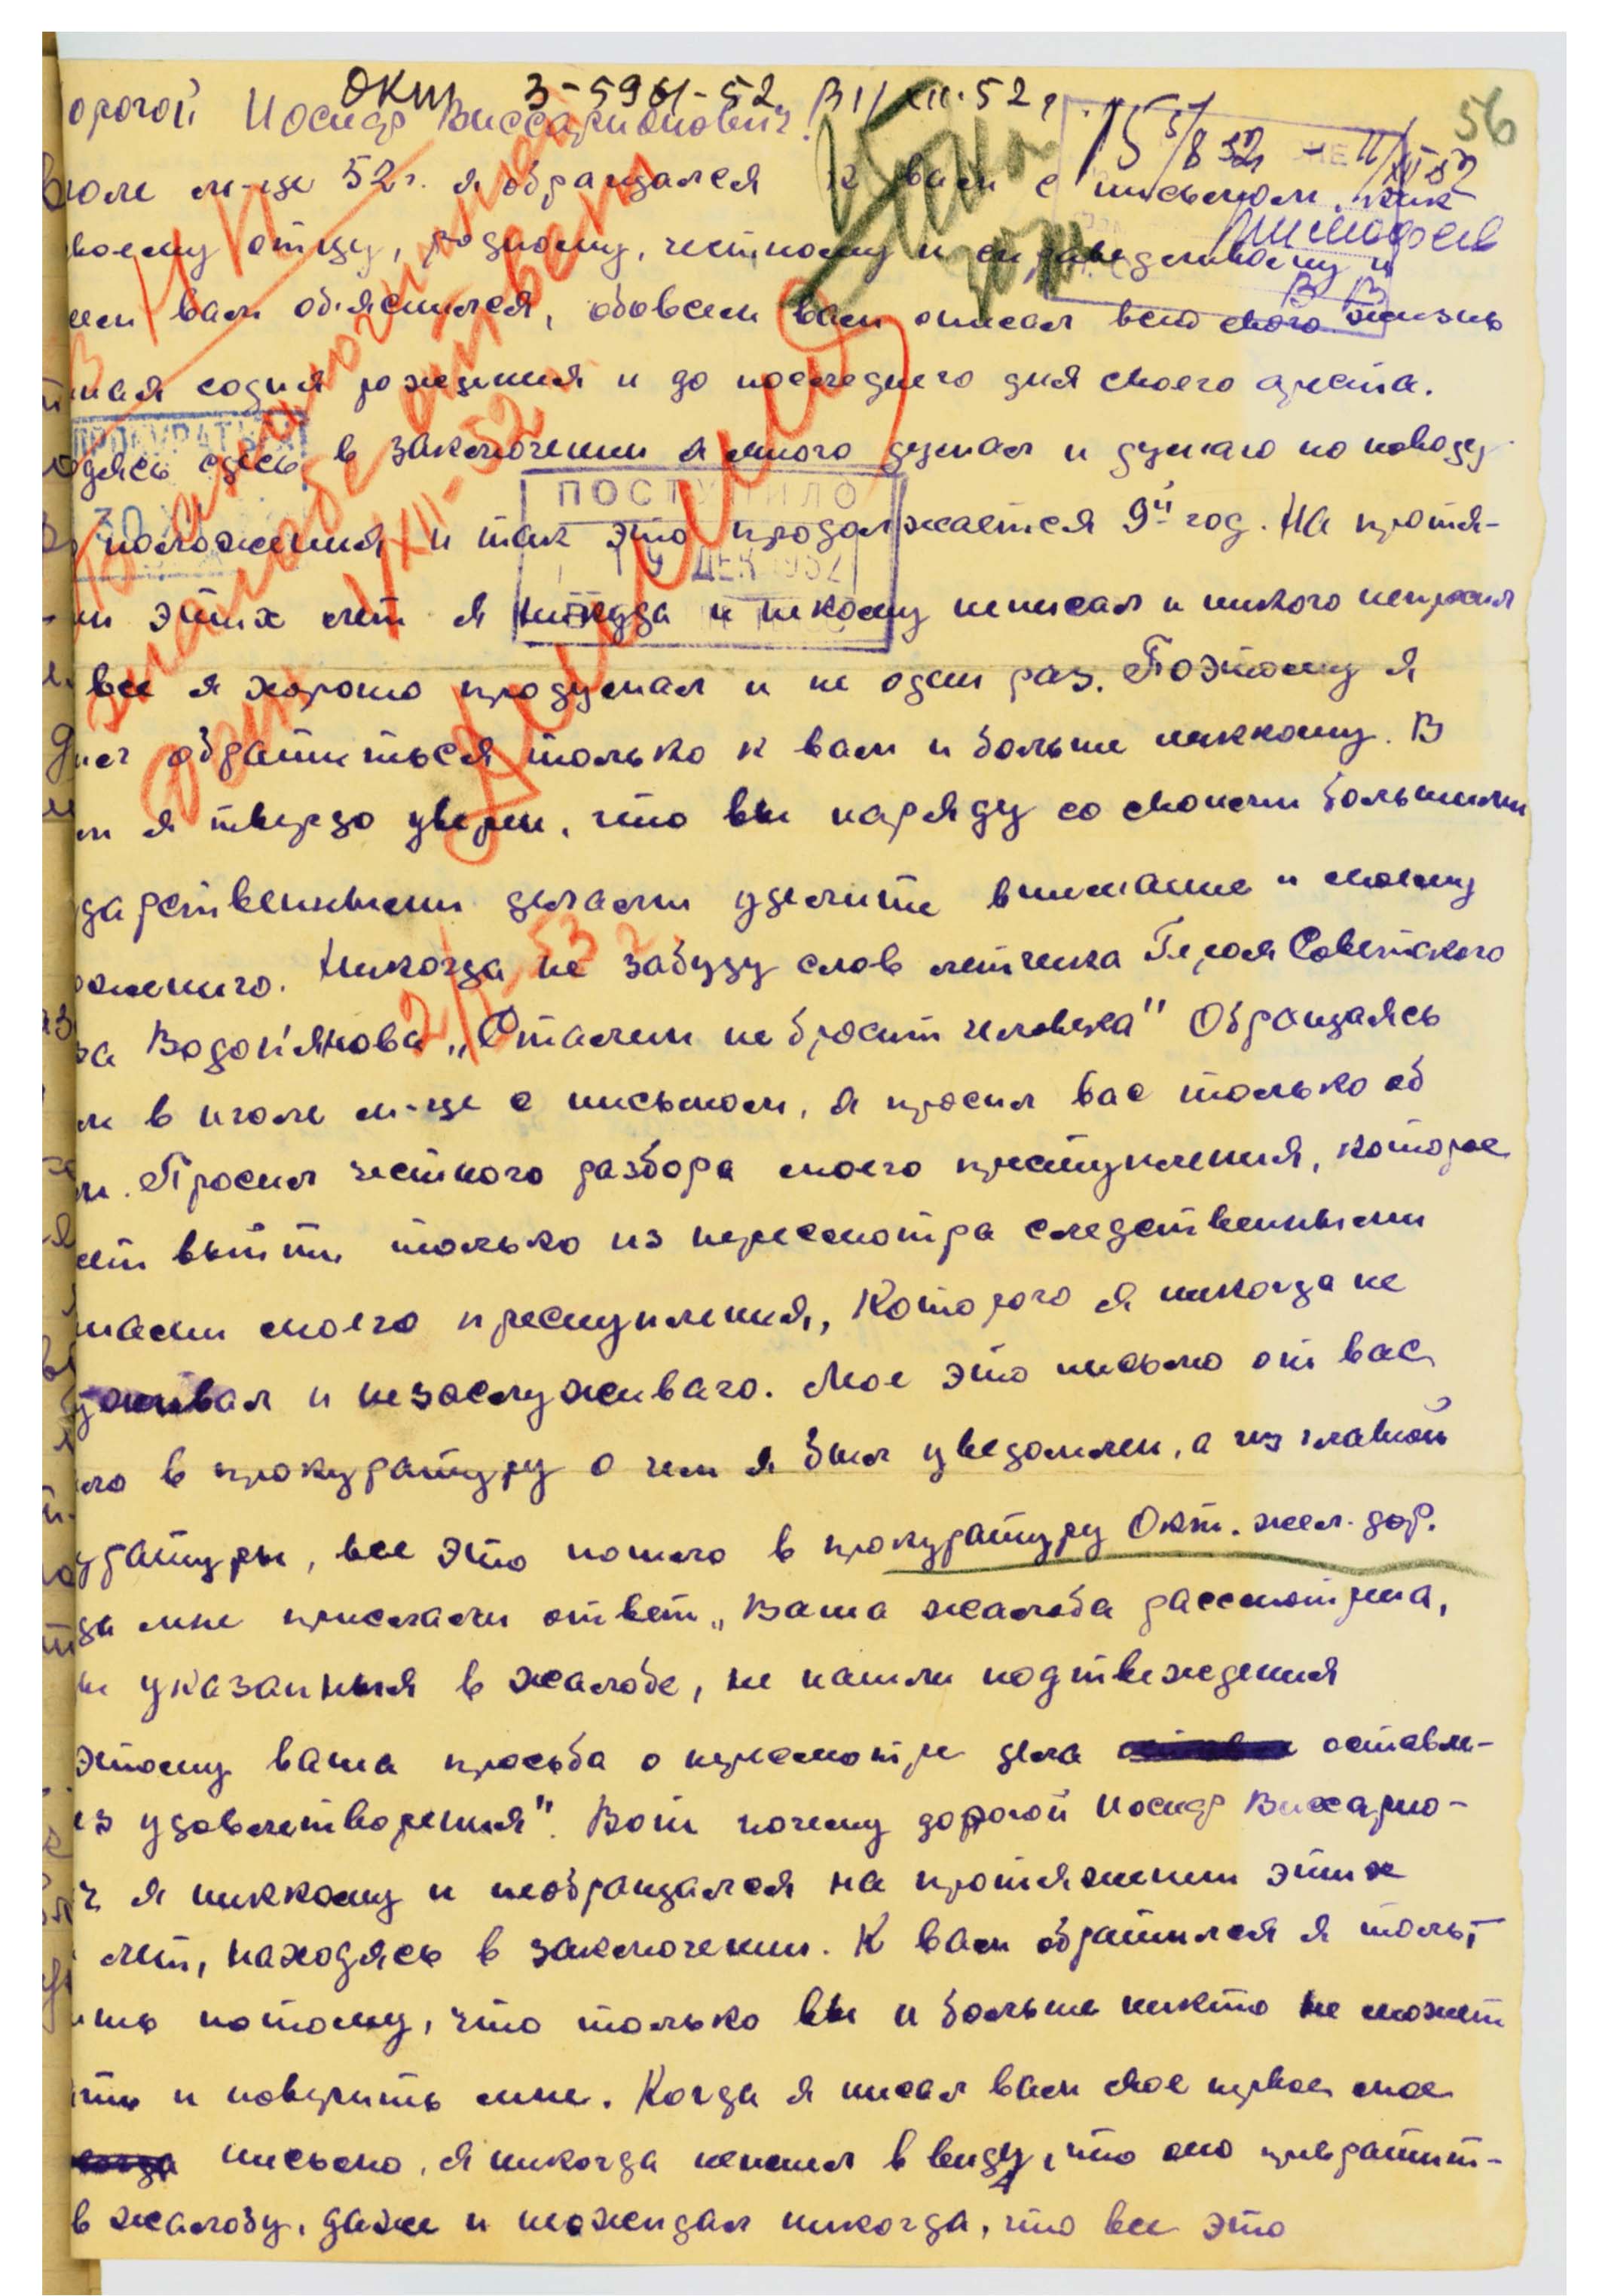 ОКТ 3-5961-52 В 1/XII-52 г. 56
орогой Иосиф Виссарионович!
июле м-це 52 г. я обращался к вам с письмом, как
своему отцу, родному, честному и справедливому и
Тимофеев
вам объяснился, обовсем вам описал всю свою жизнь
иная содня рождения и до последнего дня своего ареста.
ПРОКУРАТУРА
одясь здесь в заключении я много думал и думаю по поводу
ПОСТУПИЛО
положения и так это продолжается 9й год. На протя-
19 ДЕК 1952
ии этих лет я никуда и некому неписал и никого непросил
все я хорошо продумал и не один раз. Поэтому я
обратиться только к вам и больше никкому. В
м я твердо уверен, что вы наряду со своими большими
ударственными делами уделите внимание и моему
ожению. Никогда не забуду слов летчика Героя Советского
за Водопьянова „Сталин не бросит человека" Обращаясь
2/I-53 г.
м в июле м-це с письмом, я просил вас только об
м. Просил честного разбора моего преступления, которое
ет выйти только из пересмотра следственными
нами моего преступления, которого я никогда не
уживал и незаслуживаю. Мое это письмо от вас
ло в прокуратуру о чем я был уведомлен, а из главной
уратуры, все это пошло в прокуратуру Окт. жел. дор.
да мне прислали ответ „Ваша жалоба рассмотрена,
ы указанныя в жалобе, не нашли подтвеждения
этому ваша просьба о пересмотре дела оставле-
ез удовлетворения". Вот почему дорогой Иосиф Виссарио-
ч я никкому и необращался на протяжении этих
лет, находясь в заключении. К вам обратился я толь-
ишь потому, что только вы и больше никто не может
ять и поверить мне. Когда я писал вам свое первое мое
письмо, я никогда неимел в виду, что оно превратит-
в жалобу, даже и неожидал никогда, что все это